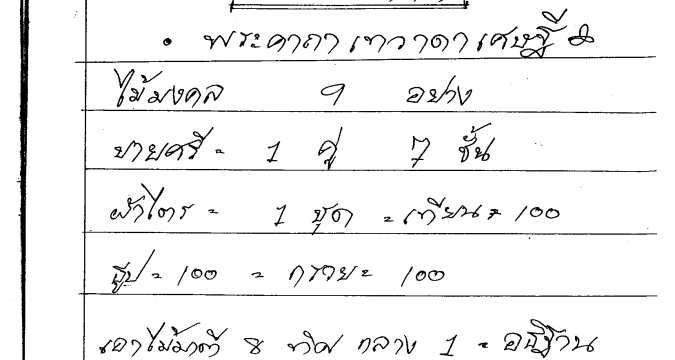 • พระคาถา เทวาดา เศษฐี
ไม้มงคล 9 อย่าง
บายศรี - 1 คู่ 7 ชั้น
ผ้าไตร = 1 ชุด = เทียน = 100
ธูป = 100 = กรวย = 100
เอาไม้มาตี 8 ทิศ กลาง 1 - อธิฐาน